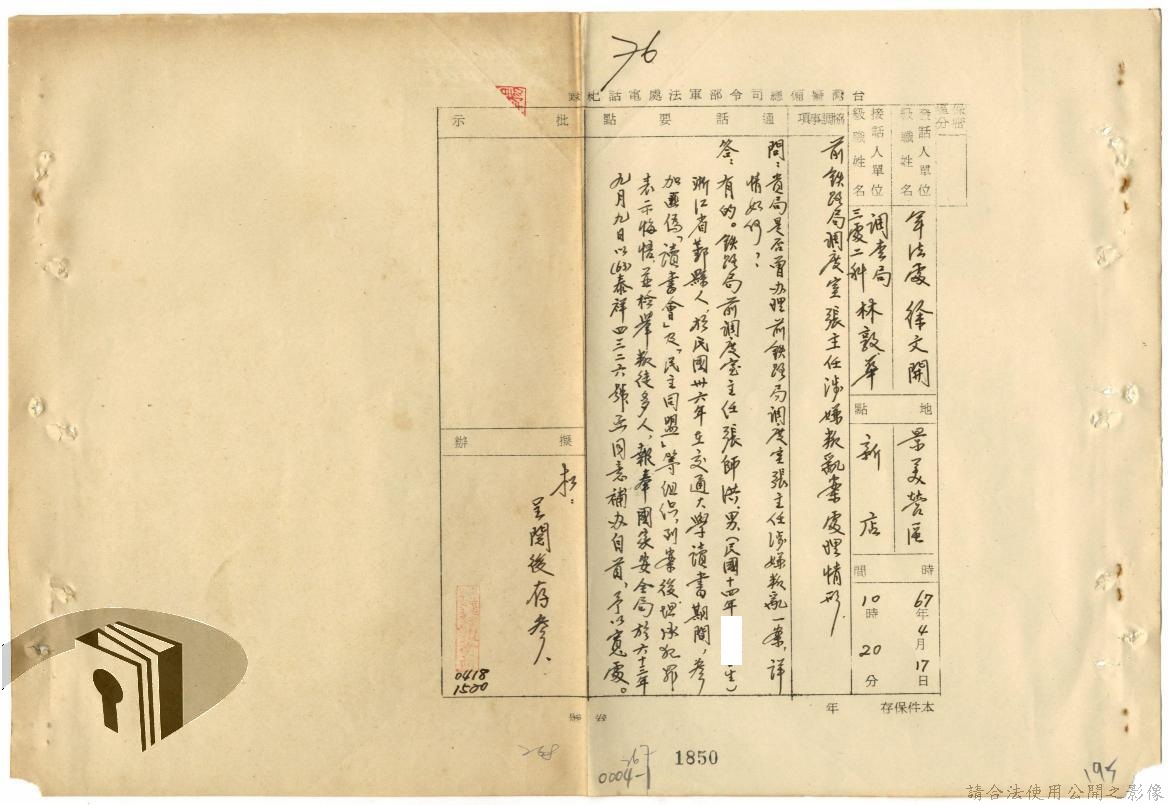 76
台灣警備總司令部軍法處電話紀錄
保密區分
發話人單位級職姓名
軍法處 徐文開
接話人單位級職姓名
調查局三處二科 林敦華
地點
景美營區
新店
時間
67年4月17日
10時20分
本件保存 年
協調事項
前鉄路局調度室張主任涉嫌叛亂案處理情形
通話要點
問：貴局是否曾办理前鉄路局調度室張主任涉嫌叛亂一案，詳
情如何？
答：有的。鉄路局前調度室主任張師洪、男、(民國十四年 生)
浙江省鄞縣人，於民國卅六年在交通大學讀書期間，參
加匪偽「讀書會」及「民主同盟」等組织，到案後坦承犯罪
表示悔悟並检舉叛徒多人，報奉國家安全局於六十三年
九月九日以(63)泰祥四三二六號函同意補办自首，予以寬處。
批示
擬辦
擬：
呈閱後存參
0418
1500
0004-1
1850
195
請合法使用公開之影像